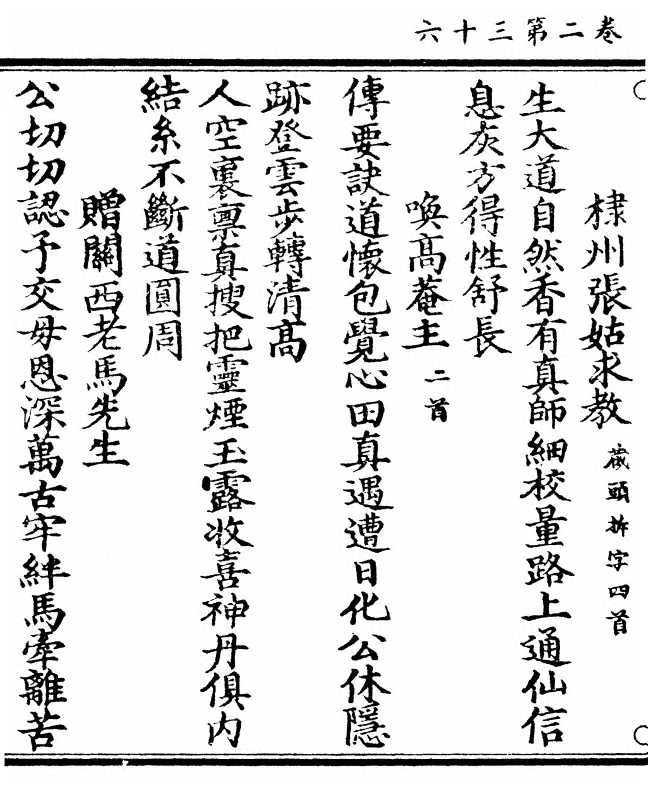 卷二第三十六
棣州張姑求教 藏頭拆字四首
生大道自然香有真師細校量路上通仙信
息灰方得性舒長
喚高菴主 二首
傳要訣道懷包覺心田真遇遭日化公休隱
跡登雲步轉清高
人空裏禀真搜把靈煙玉露收喜神丹俱內
結糸不斷道圓周
贈關西老馬先生
公切切認予交毋恩深萬古牢絆馬牽離苦